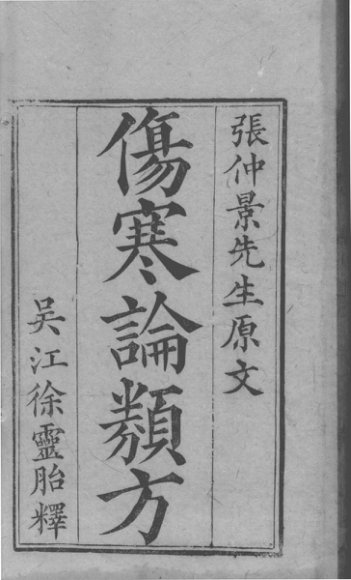 張仲景先生原文
傷寒論類方
吴江徐靈胎釋